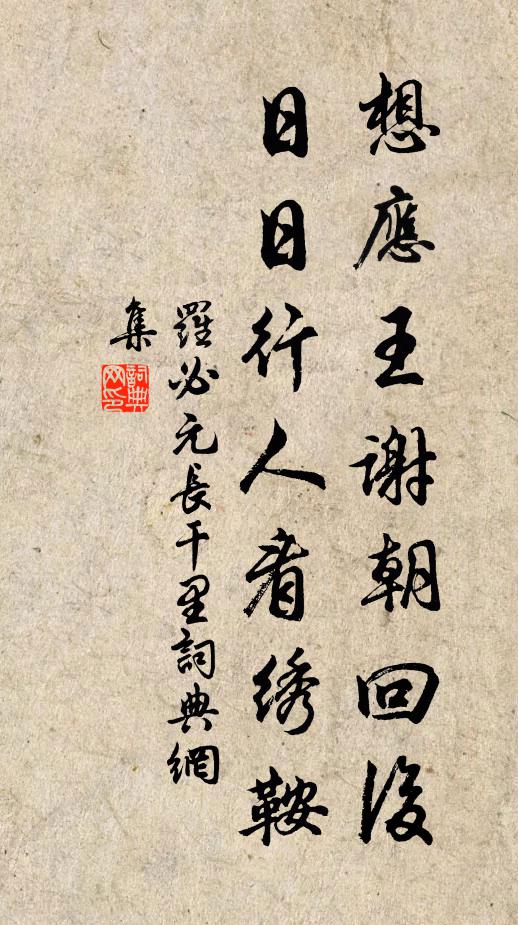 想應王謝朝回後
日日行人看綉鞍
羅必元長干里詞典網
集
詞典
网印